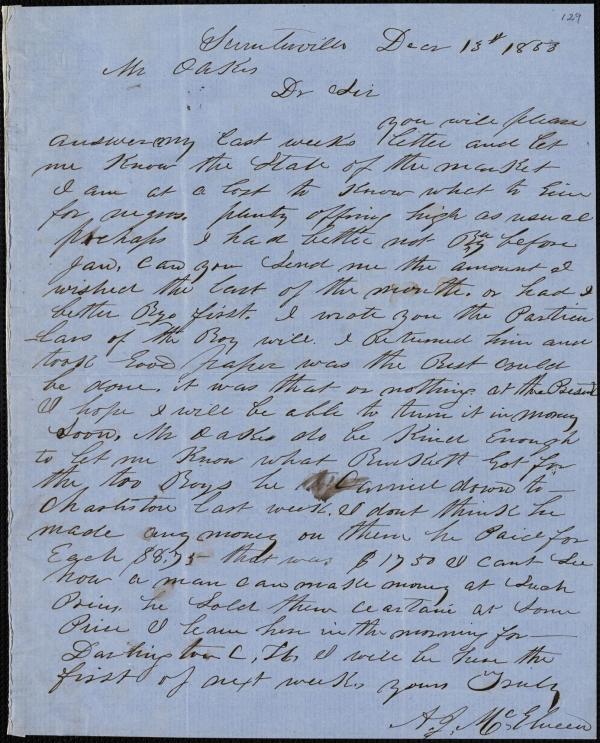 129
Sumterville Decr 13th 1853
Mr Oakes
Dr Sir
you will please
answer my last weeks letter and let
me Know the State of the market
I am at a lost to Know what to Give
for negros. plenty offing high as usual
perhaps I had better not By before
Jan, can you Send me the amount I
wished the last of the month. or had I
better Bye first. I wrote you the Particu
lars of the Boy will. I Returned him and
took Good paper was the Best could
be done, it was that or nothing at the Present
I hope I will be able to turn it in money
Soon, Mr Oakes do be Kind Enough
to let me Know what Got for
the too Boys he Carried down to
Charleston last week. I dont think he
made any money on them he Paid for
Each $8.75 that was $1750 I cant See
how a man can make money at Such
Prices, he Sold them ceartain at Some
Price I leave here in the morning for
Darlington C, H, I will be here the
first of next week yours Truly
A. J. McElveen